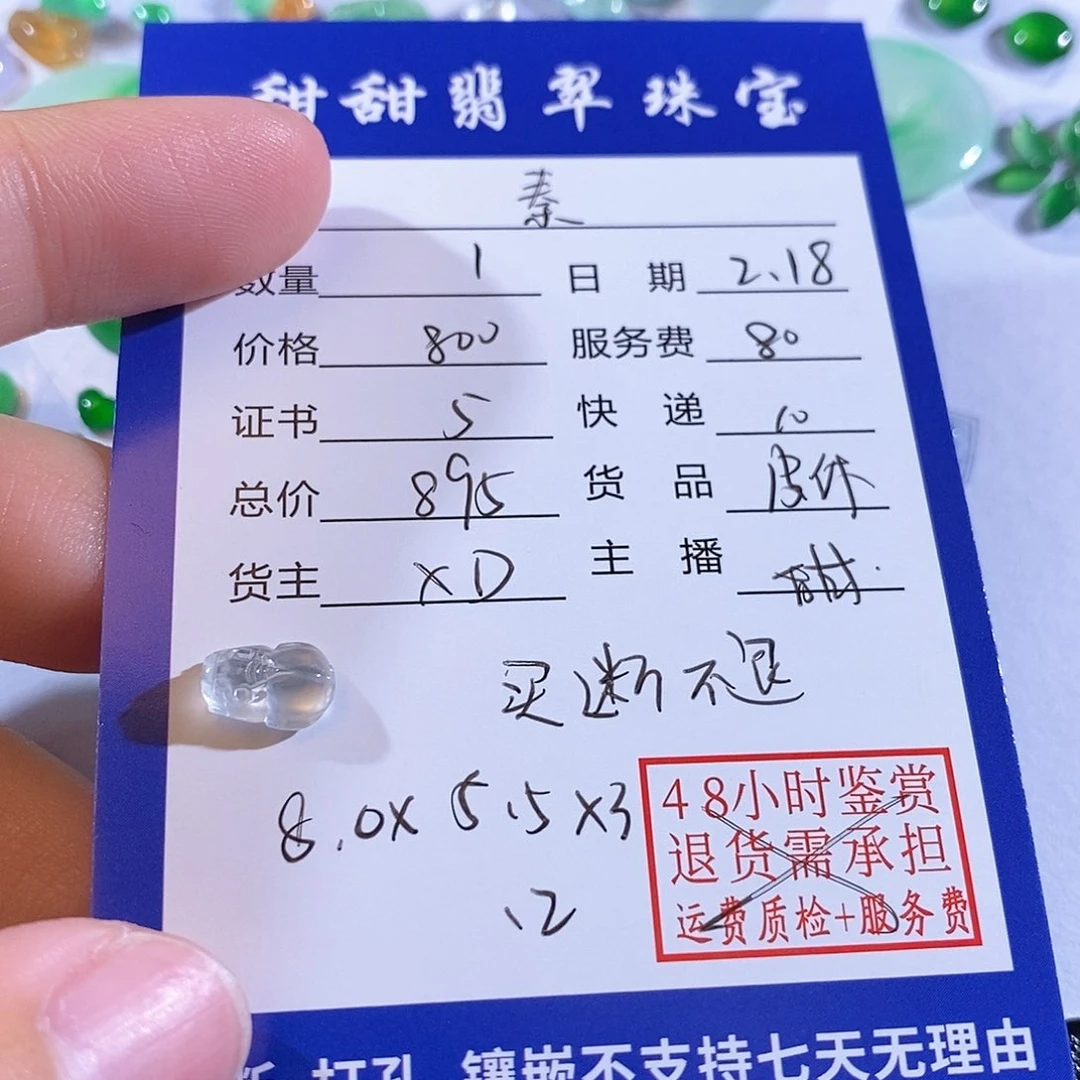 甜甜翡翠珠宝
秦
数量 1 日期 2.18
价格 800 服务费 80
证书 5 快递 10
总价 895 货品
货主 XD 主播 甜
买断不退
8.0X 5.5 X3
.2
48小时鉴赏
退货需承担
运费质检+服务费
打孔 镶嵌不支持七天无理由